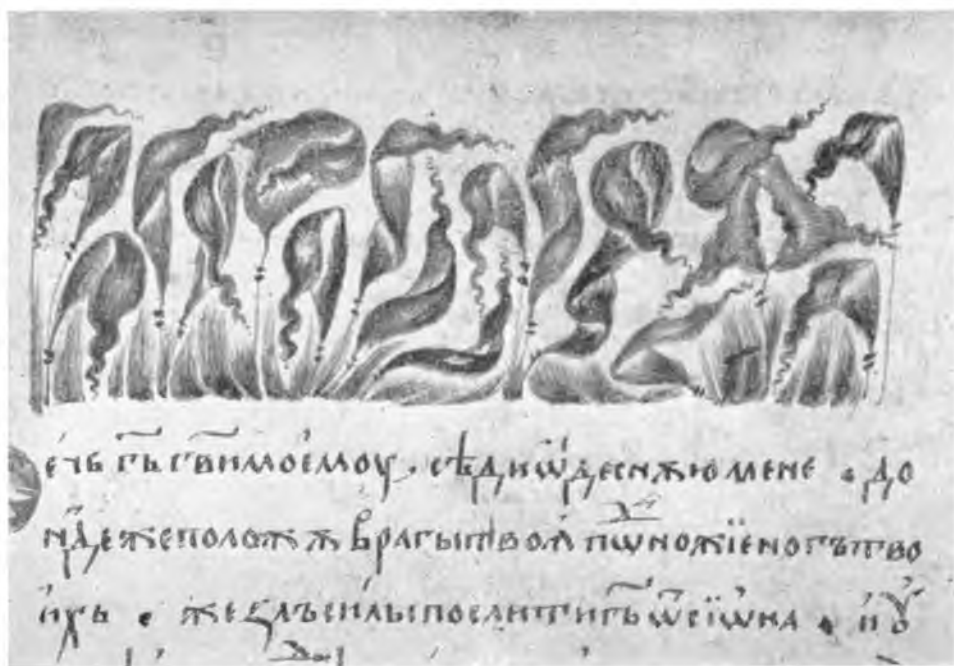 е́чь г҃ь г҃ви моемоу · сѣди ѡ҆деснѫю мене · до
нд́еже положѫ врагы твоѧ̀ пѡⷣножїе ногъ тво
и́хь · жеѕлъ си́лы послит ти г҃ь ѿ сїѡ́на · и́ ꙋ